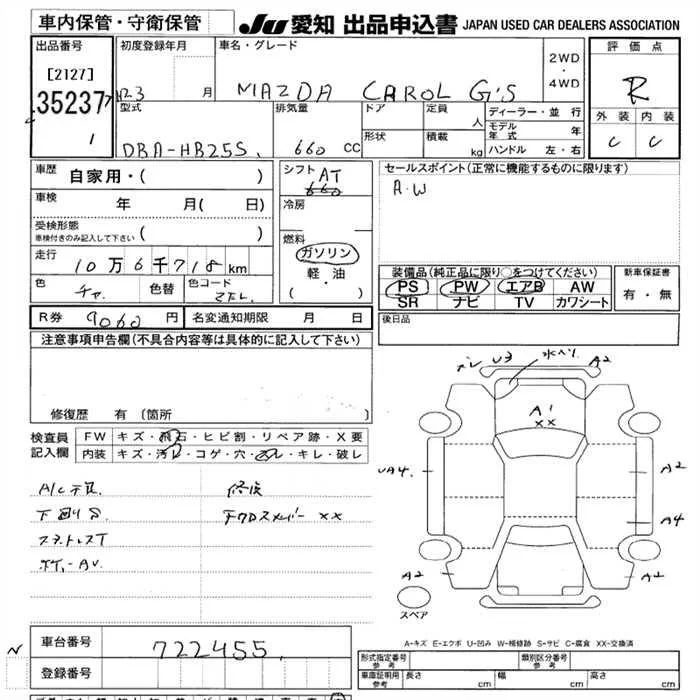 車内保管・守衛保管
JU 愛知 出品申込書 JAPAN USED CAR DEALERS ASSOCIATION
出品番号
[2127]
35237
1
初度登録年月
H23 月
車名・グレード
MAZDA CAROL G'S
2WD
・
4WD
評価点
R
外装 内装
C C
型式
DBA-HB25S
排気量
660 CC
ドア
形状
定員 人
積載 kg
ディーラー・並行
モデル年式 年
ハンドル 左・右
車歴
自家用・( )
車検
年 月( 日)
受検形態
車検付きのみ記入して下さい ( )
走行
10万6千718km
色
チャ
色替
色コード
シフト AT
660
冷房
燃料
ガソリン
軽・油
( ・ )
R券 9060 円
名変通知期限 月 日
セールスポイント(正常に機能するものに限ります)
A.W
装備品(純正品に限り○をつけてください)
PS PW エアB AW
SR ナビ TV カワシート
新車保証書
有・無
後日品
注意事項申告欄(不具合内容等は具体的に記入して下さい)
修復歴 有 (箇所 )
検査員
記入欄
FW キズ・飛石・ヒビ割・リペア跡・X要
内装 キズ・汚レ・コゲ・穴・スレ・キレ・破レ
A/C不良
修復
XX
U3
A2
A1
XX
UA4
A2
A4
A2
A2
スペア
A-キズ E-エクボ U-凹み W-補修跡 S-サビ C-腐食 XX-交換済
N
車台番号 722455
登録番号
形式指定番号
参考
類別区分番号
参考
車庫証明用
参考
長さ cm
幅 cm
高さ cm